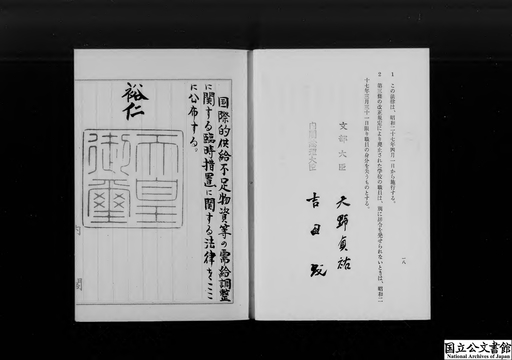 1　この法律は、昭和二十七年四月一日から施行する。
2　第三條の改正規定により廃止された学校の職員は、現に辞令を発せられないときは、昭和二
十七年三月三十一日限り職員の身分を失うものとする。
文部大臣　天野貞祐
内閣総理大臣　吉田茂
一八
国際的供給不足物資等の需給調整
に関する臨時措置に関する法律をここ
に公布する。
裕仁
天皇
御璽
内閣
国立公文書館
National Archives of Japan